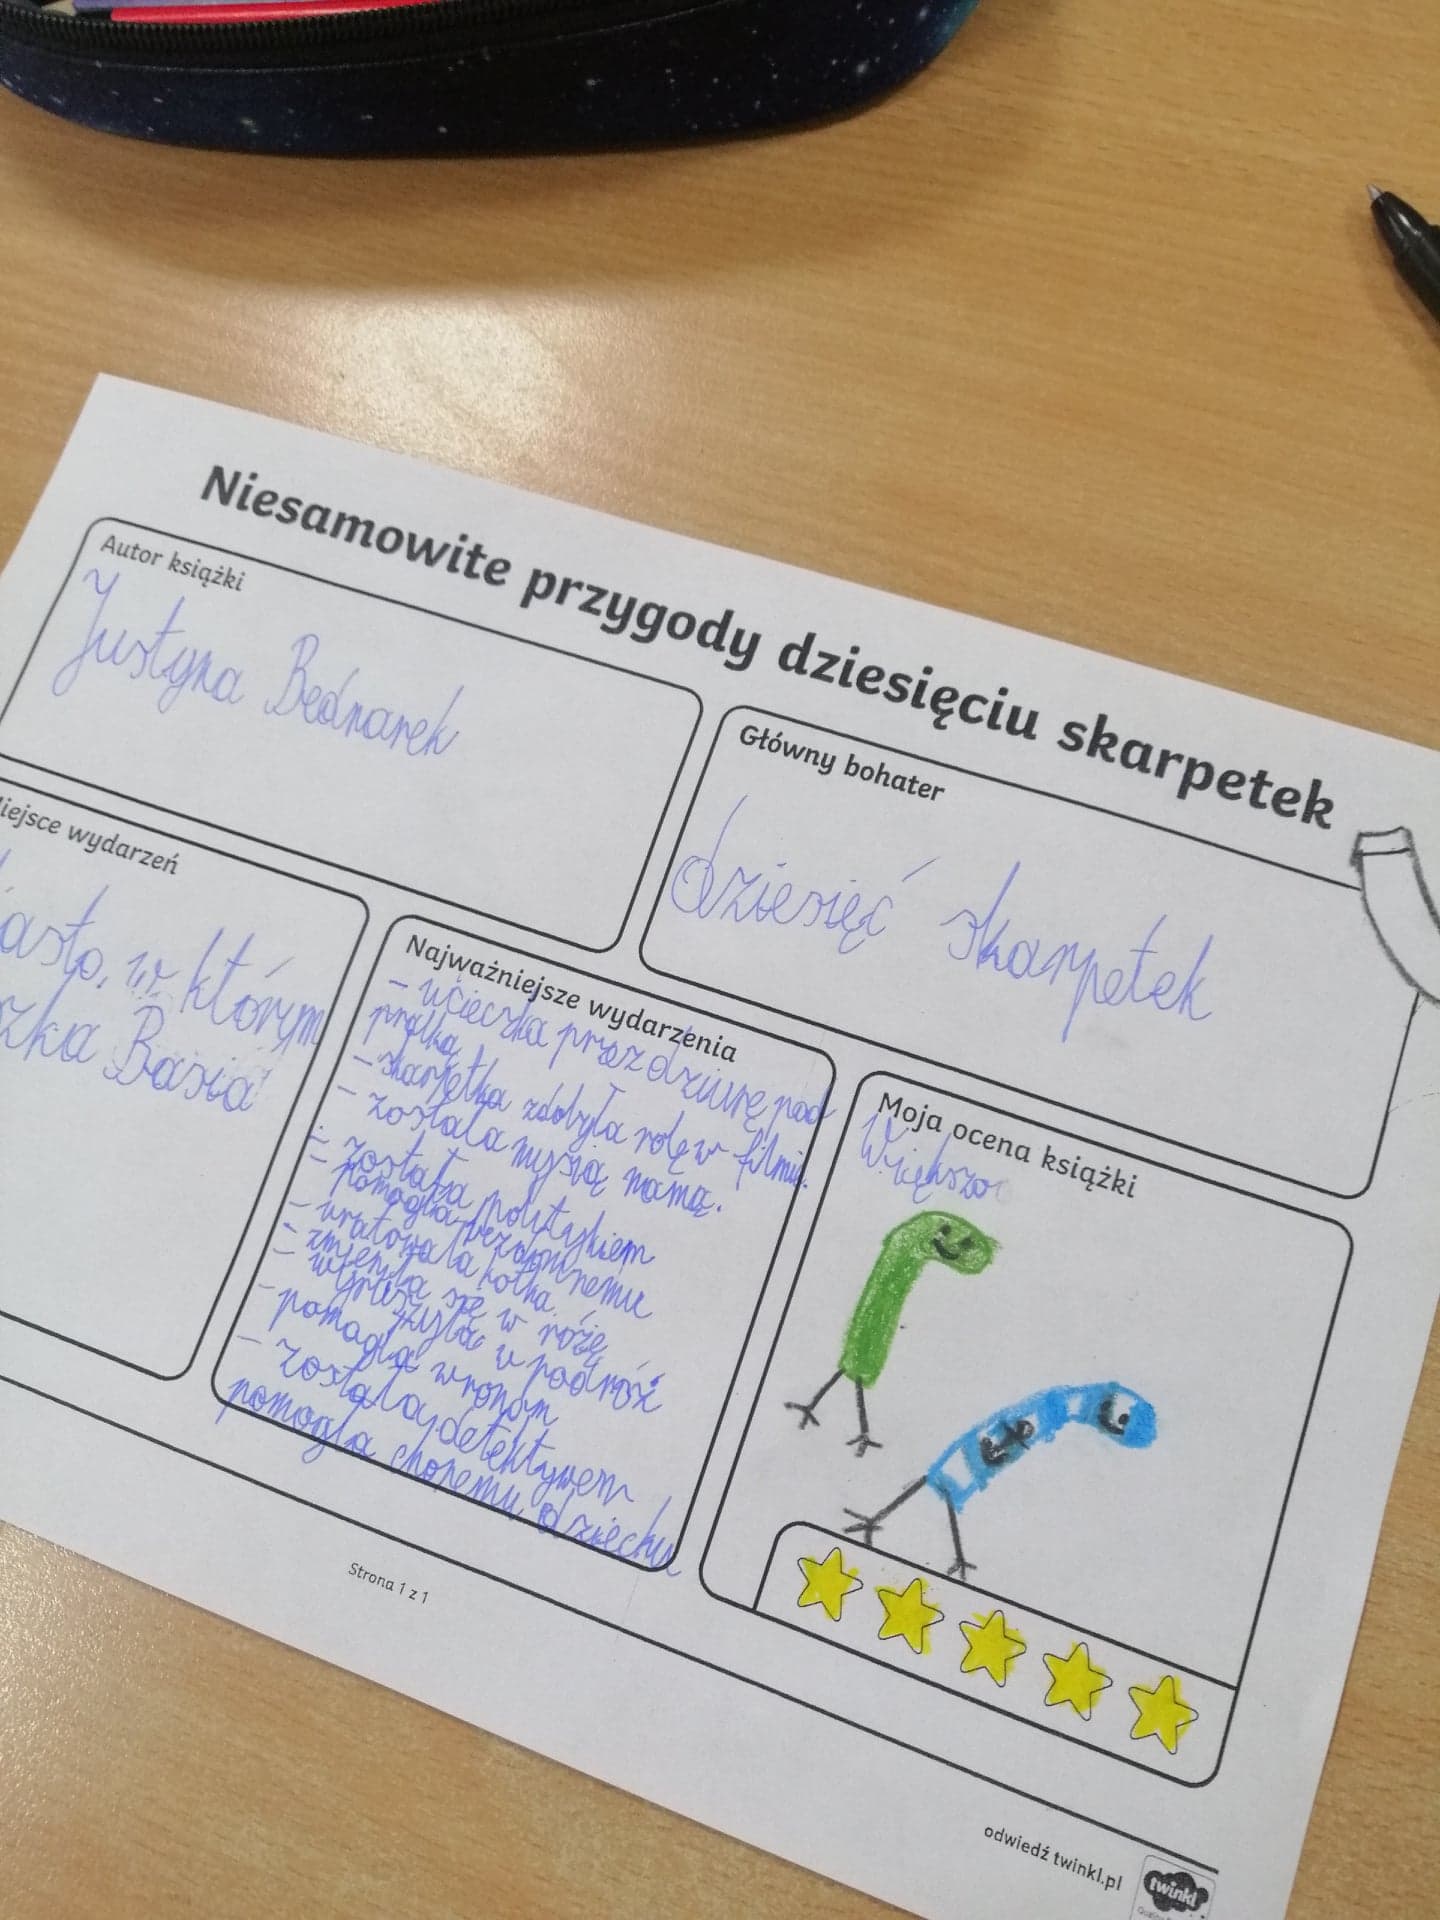 Niesamowite przygody dziesięciu skarpetek
Autor książki
Justyna Bednarek
Główny bohater
dziesięć skarpetek
iejsce wydarzeń
asto, w którym
szka Basia
Najważniejsze wydarzenia
- ucieczka przez dziurę pod
pralką
- skarpetka zdobyła rolę w filmie.
- została mysią mamą.
- została politykiem
- pomogła bezdomnemu
- uratowała kotka.
- zmieniła się w różę
- wyruszyła w podróż
- pomogła wronom
- została detektywem
pomogła choremu dziecku
Moja ocena książki
Większo
Strona 1 z 1
odwiedź twinkl.pl
twinkl